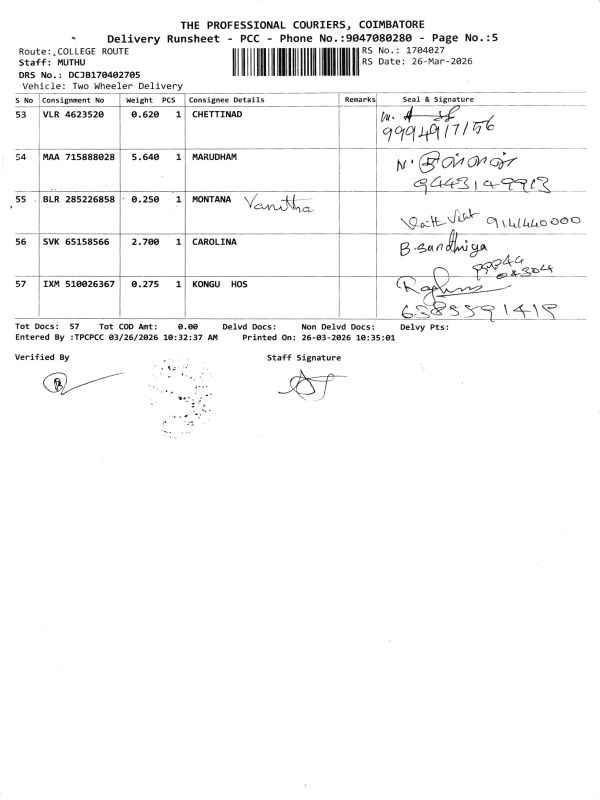 THE PROFESSIONAL COURIERS, COIMBATORE
Delivery Runsheet - PCC - Phone No.:9047080280 - Page No.:5
Route: COLLEGE ROUTE
RS No.: 1704027
Staff: MUTHU
RS Date: 26-Mar-2026
DRS No.: DCJB170402705
Vehicle: Two Wheeler Delivery
S No Consignment No Weight PCS Consignee Details Remarks Seal & Signature
53 VLR 4623520 0.620 1 CHETTINAD
9994917156
54 MAA 715888028 5.640 1 MARUDHAM
9443149913
55 BLR 285226858 0.250 1 MONTANA Vanitha
9141440000
56 SVK 65158566 2.700 1 CAROLINA B.Sandhiya
57 IXM 510026367 0.275 1 KONGU HOS
6385591419
Tot Docs: 57 Tot COD Amt: 0.00 Delvd Docs: Non Delvd Docs: Delvy Pts:
Entered By :TPCPCC 03/26/2026 10:32:37 AM Printed On: 26-03-2026 10:35:01
Verified By Staff Signature